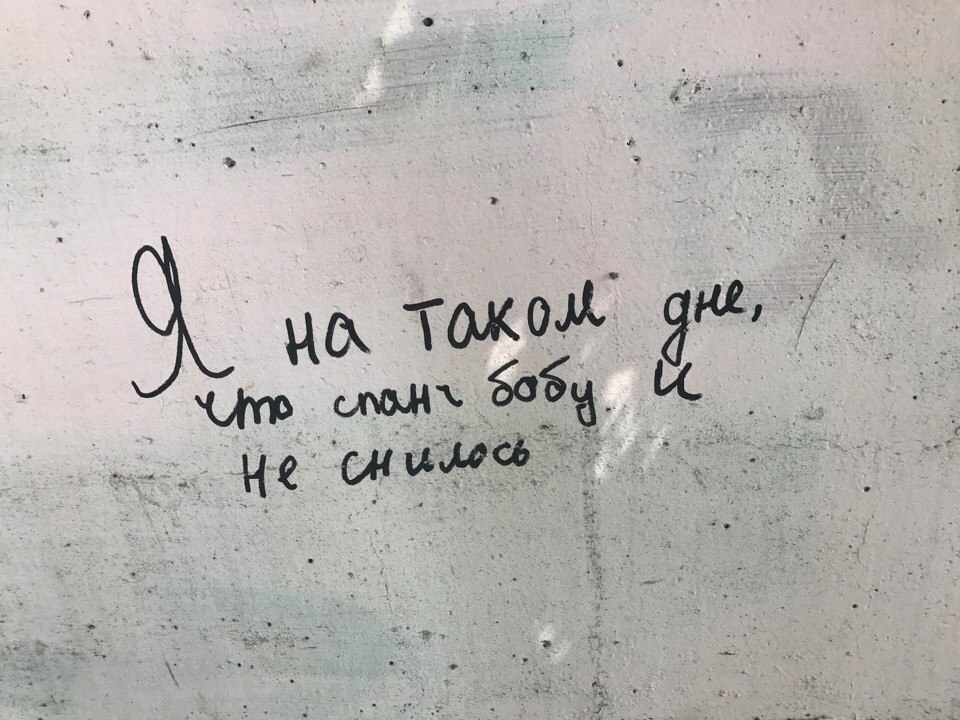 Я на таком дне,
что спанч бобу и
не снилось